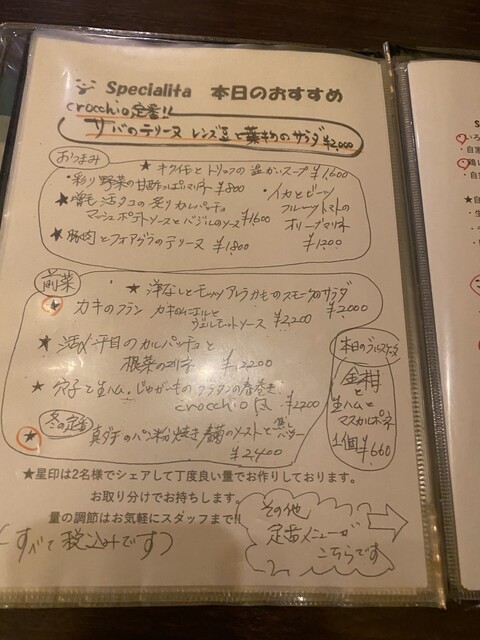 Specialita 本日のおすすめ
crocchio定番!!
サバのテリーヌ レンズ豆と葉物のサラダ ¥2,000
おつまみ
★ キクイモとトリュフの温かいスープ ¥1600
・彩り野菜の甘酢っぱいマリネ ¥800
★ 活タコの炙りカルパッチョ
マッシュポテトソースとバジルのソース ¥1600
★ 豚肉とフォアグラのテリーヌ ¥1,800
・イカとビーツ
フルーツトマトの
オリーブマリネ
¥1200
前菜
★ 洋なしとモッツァレラ カモのスモークのサラダ
¥2,000
★ カキのフラン カキのムニエルと
ヴェルモットソース ¥2,200
★ 活〆平目のカルパッチョと
根菜の ¥2200
★ 穴子と生ハム、じゃがいものグラタンの春巻き
crocchio風 ¥2200
冬の定番
★ 真ダチのパン粉粉焼き 春菊のソースと
¥2,400
本日の
金柑
と
生ハムと
マスカルポーネ
1個 ¥660
★星印は2名様でシェアして丁度良い量でお作りしております。
お取り分けでお持ちします。
量の調節はお気軽にスタッフまで!!
(すべて税込みです)
その他
定番メニューが
こちらです